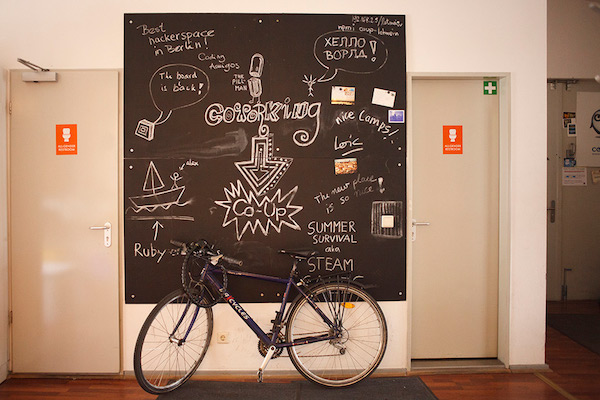 Best
hackerspace
in Berlin!
Coding
Amigos
ХЕЛЛО
ВОРЛД!
The board is
back!
THE
PILL
MAN
COWORKING
nice Lamps!
Loic
The new place
is so nice!
alex
Co-Up
SUMMER
SURVIVAL
aka
STEAM
Ruby